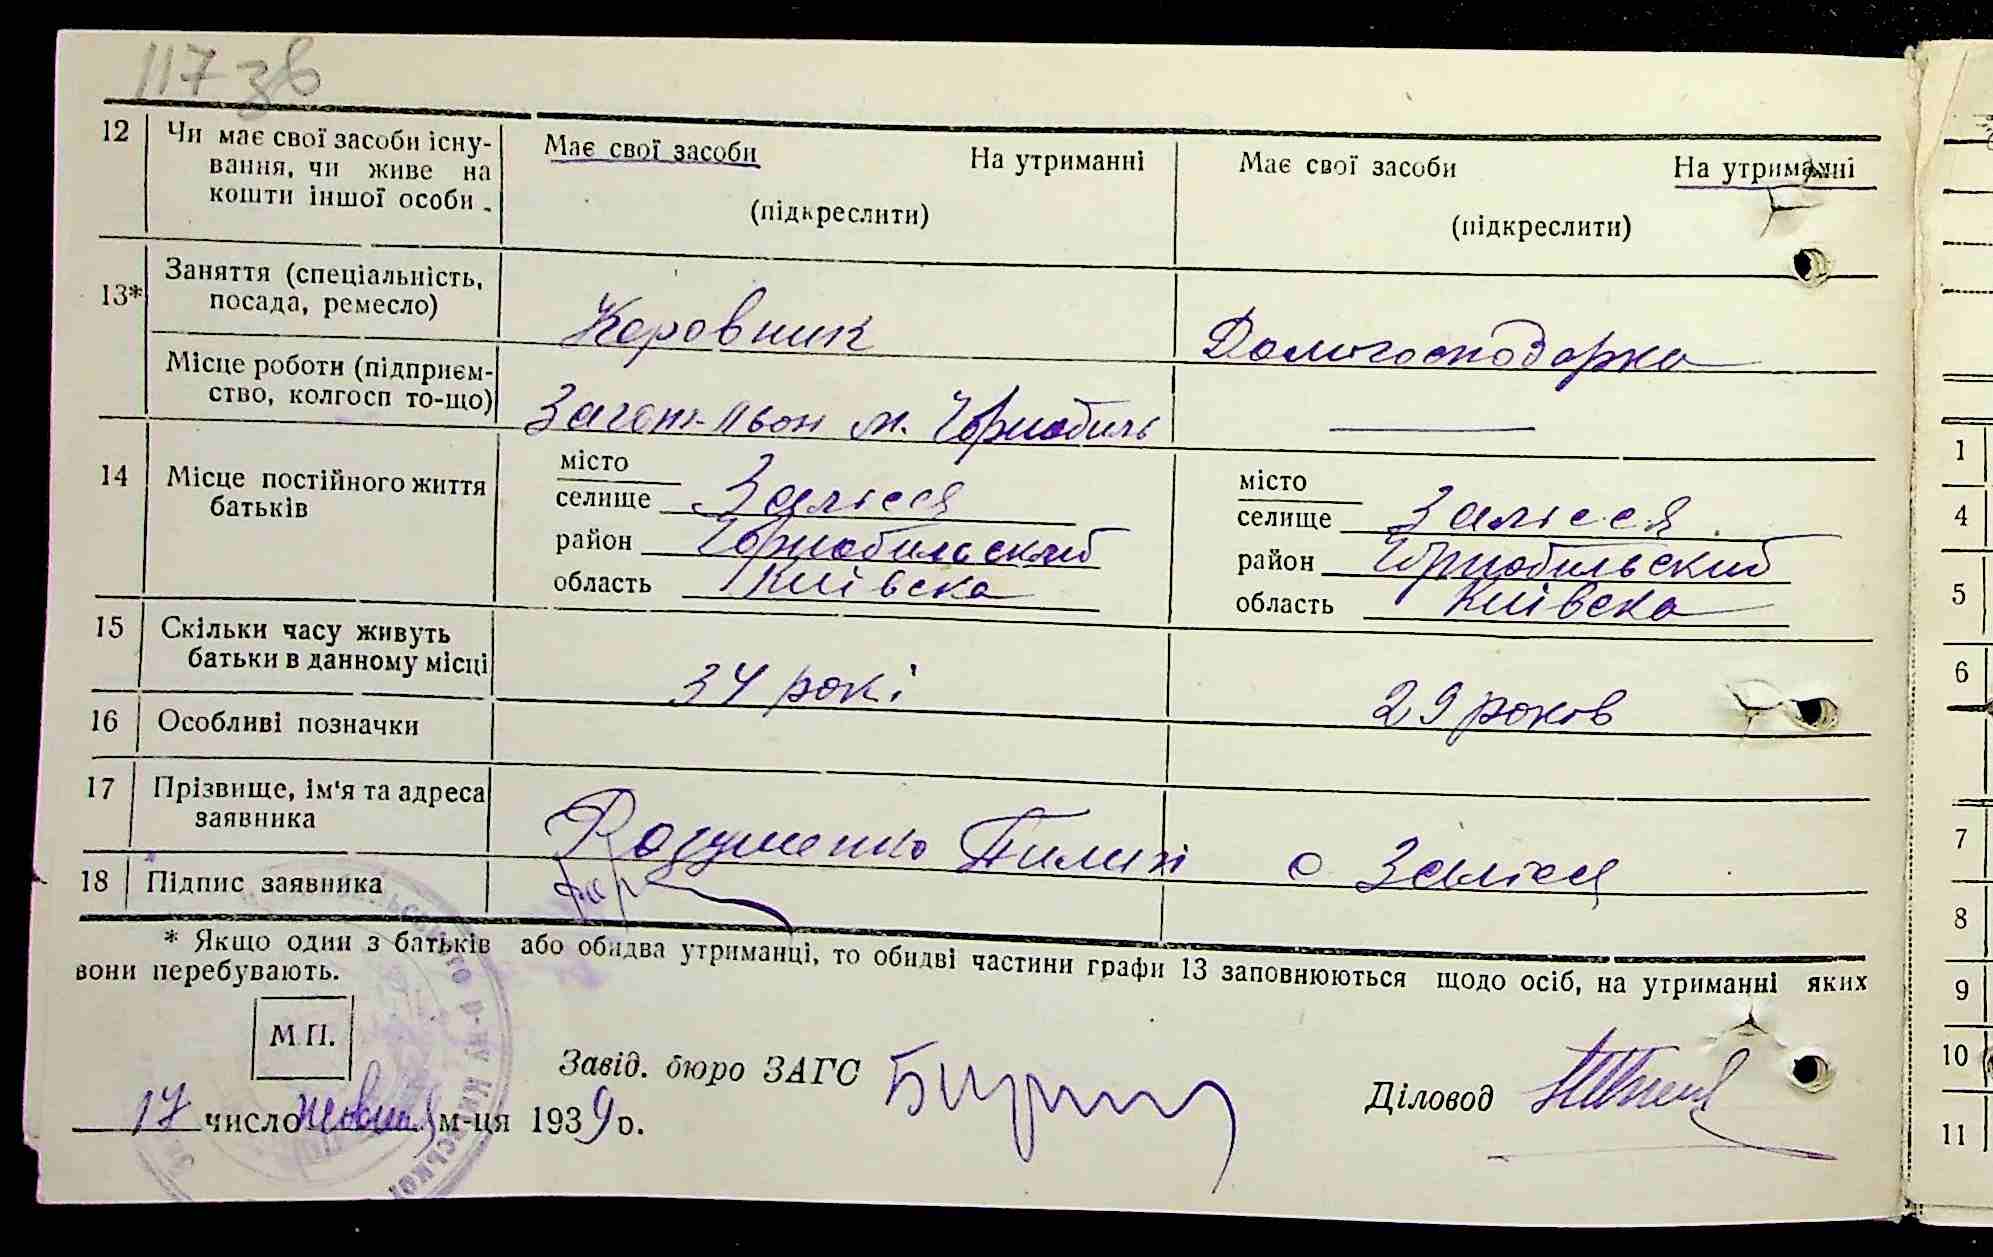 117 зв
12 Чи має свої засоби існу- Має свої засоби На утриманні Має свої засоби На утриманні
вання, чи живе на
кошти іншої особи . (підкреслити) (підкреслити)
13* Заняття (спеціальність,
посада, ремесло) Коровник Домогосподарка
Місце роботи (підприєм-
ство, колгосп то-що) Загот-льон м. Чорнобиль —
14 Місце постійного життя
батьків
місто місто
селище Залісся селище Залісся
район Чорнобильский район Чорнобильский
область Київска область Київска
15 Скільки часу живуть
батьки в данному місці 34 рокі 29 років
16 Особливі позначки
17 Прізвище, ім'я та адреса
заявника Розуменко Пилип с Залісся
18 Підпис заявника
* Якщо один з батьків або обидва утриманці, то обидві частини графи 13 заповнюються щодо осіб, на утриманні яких
вони перебувають.
М.П.
Завід. бюро ЗАГС Діловод
17 число жовтня м-ця 1939 р.
1
4
5
6
7
8
9
10
11